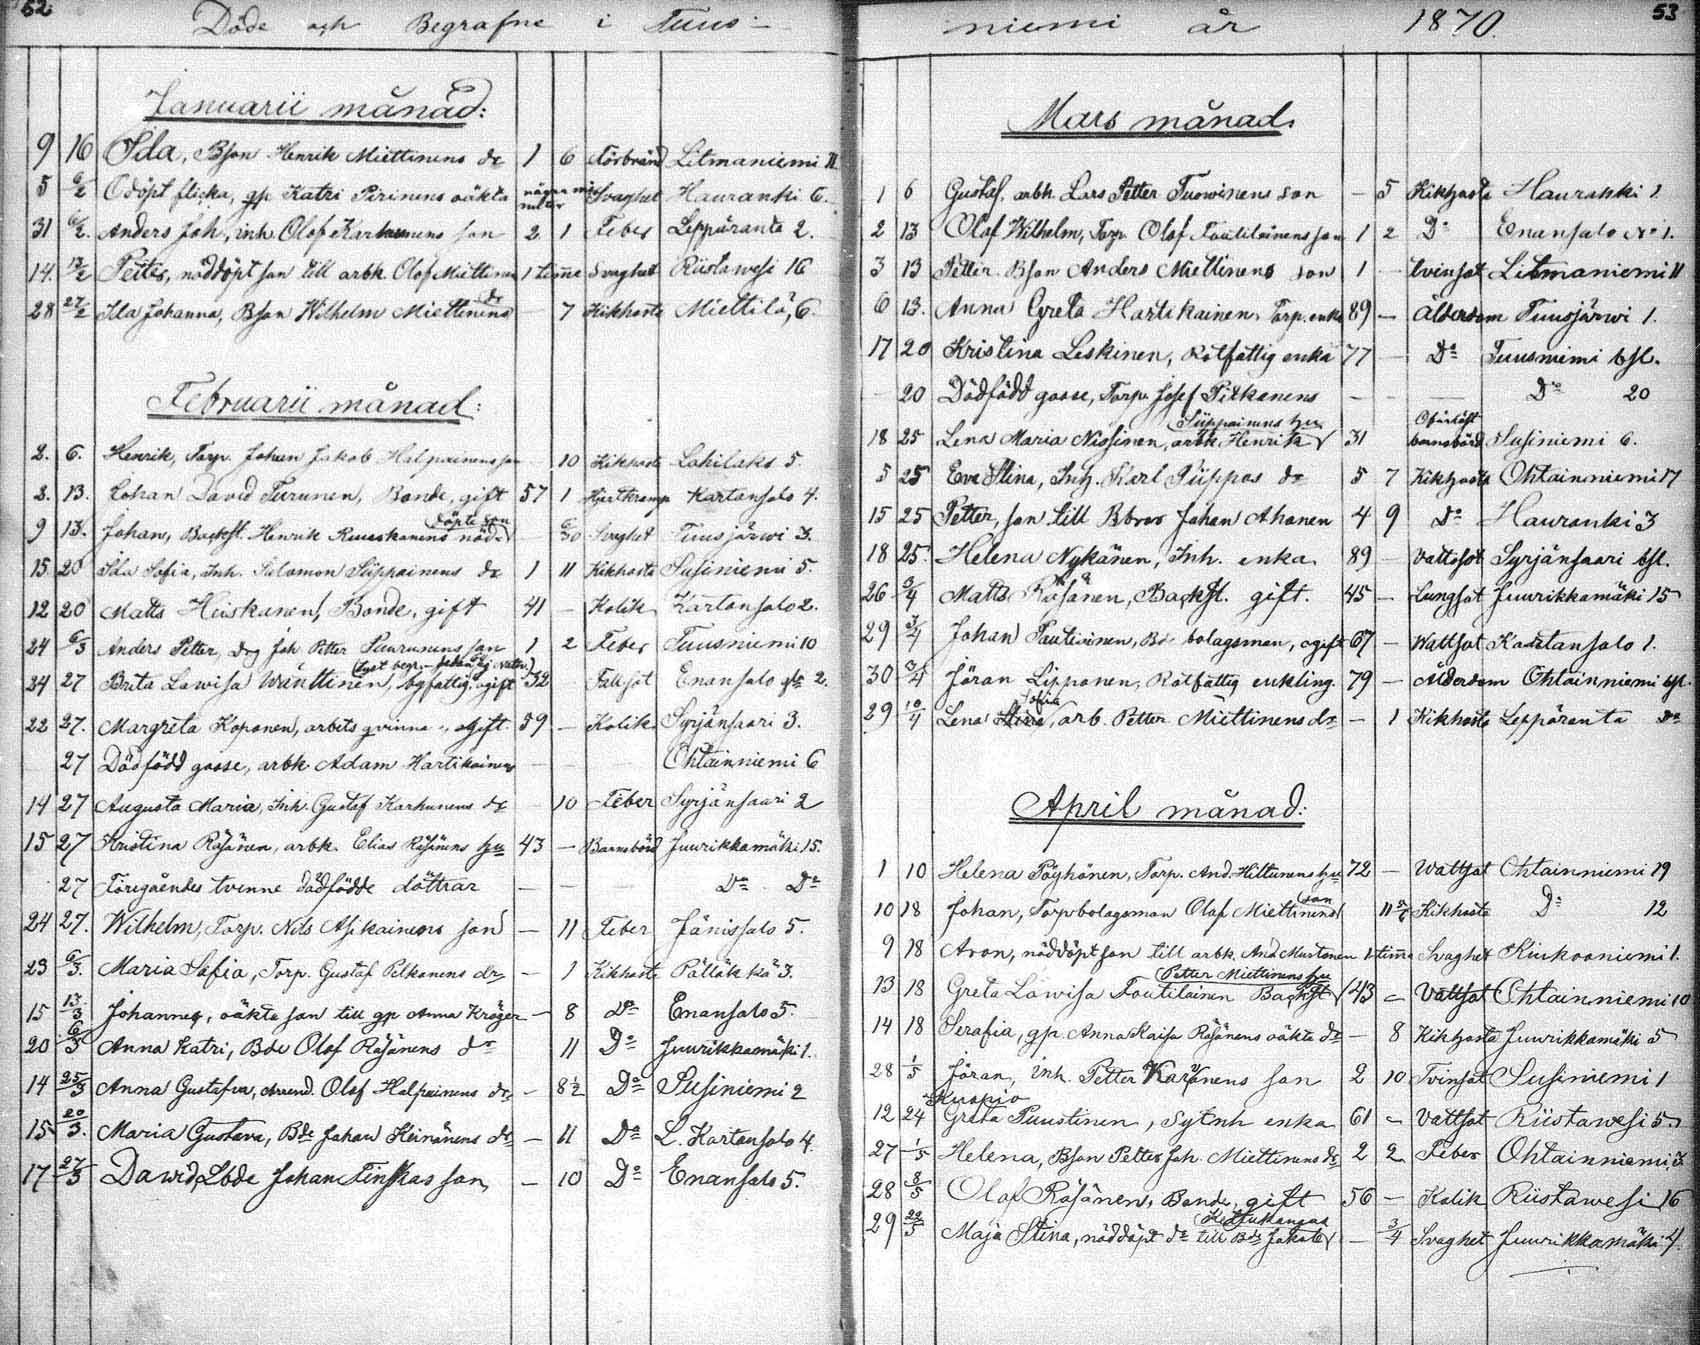 52
Döde och Begrafne i Tuus-
Januarii månad:
9 16 Ida, Bson Henrik Miettinens dr 1 6 Förbränd Litmaniemi 11
5 6/2 Odöpt flicka, gp Katri Pirinens oäkta några minuter Svaghet Hauranki 6.
31 6/2. Anders Joh, inh. Olof Karhunens son 2 1 Feber Leppäranta 2.
14. 13/2 Petter, nöddöpt son till arbk. Olof Miettinen 1 timme Svaghet Riistawesi 16
28 27/2 Ida Johanna, Bson Wilhelm Miettinens dr – 7 Kikhosta Miettilä, 6.
Februarii månad:
2. 6. Henrik, Torp. Johan Jakob Halpainens son 10 Kikhosta Lahilaks 5.
2. 13. Johan David Turunen, Bonde, gift 57 1 Hjertkramp Kartansalo 4.
9 13. Johan, Backst. Henrik Ruuskanens nöddöpte son 6/30 Svaghet Tuusjärwi 3.
15 20 Ida Sofia, Inh. Salomon Siippainens dr 1 11 Kikhosta Susiniemi 5.
12 20 Matts Heiskanen, Bonde, gift 41 – Kolik Kartansalo 2.
24 6/3 Anders Petter, Drg Joh. Petter Puurunens son 1 2 Feber Tuusniemi 10
24 27 Brita Lawisa Wänttinen, bgfattig, ogift 32 – Fallsot Enansalo 2.
22 27. Margreta Koponen, arbetsqvinna, ogift. 59 – Kolik Syrjänsaari 3.
27 Dödfödd gosse, arbk Adam Hartikainens – – Ohtainniemi 6
14 27 Augusta Maria, Inh. Gustaf Karhunens dr – 10 Feber Syrjänsaari 2
15 27 Kristina Räsänen, arbk. Elias Räsänens hu 43 – Barnsbörd Juurikkamäki 15.
27 Föregåendes tvenne dödfödde döttrar – – – Do Do
24 27. Wilhelm, Torp. Nils Asikainens son – 11 Feber Jänissalo 5.
23 6/3. Maria Sofia, Torp. Gustaf Pelkonens dr – 1 Kikhosta Pällikkä 3.
15 13/3 Johannes, oäkta son till gp Anna Kröger – 8 Do Enansalo 5.
20 6/3 Anna Katri, Bde Olof Räsänens dr 11 Do Juurikkamäki 1.
14 25/3 Anna Gustafva, Arrend. Olof Halpainens dr – 8½ Do Susiniemi 2
15 20/3. Maria Gustava, Bde Johan Keinänens dr – 11 Do L. Kartansalo 4.
17 27/3 Dawid, Lbde Johan Finskas son, – 10 Do Enansalo 5.
53
niemi år 1870.
Mars månad.
1 6 Gustaf, arbk. Lars Petter Tuowinens son – 5 Kikhosta Hauranki 1.
2 13 Olof Wilhelm, Torp Olof Toutilainens son 1 2 Do Enansalo No 1.
3 13 Petter Bson Anders Miettinens son 1 – tvinsot Litmaniemi 11
6 13. Anna Greta Hartikainen, Torp. enka 89 – Ålderdom Tuusjärwi 1.
17 20 Kristina Leskinen, Rotfattig enka 77 – Do Tuusniemi bst.
– 20 Dödfödd gosse, Torp. Josef Pitkänens – – – Do 20
18 25 Lena Maria Nissinen, arbk Henrik Siippainens hu 31 Oförlöst barnsbörd Susiniemi 6.
5 25 Eva Stina, Inh. Karl Piippos dr 5 7 Kikhosta Ohtainniemi 17
15 25 Petter, son till Bbror Johan Ahonen 4 9 Do Hauranki 3
18 25. Helena Nykänen, Inh. enka 89 – Vattusot Syrjänsaari bst.
26 3/4 Matts Räsänen, Backst. gift. 45 – Lungsot Juurikkamäki 15
29 3/4 Johan Tautiainen, Bd bolagsman, ogift 67 – Wattsot Kartansalo 1.
30 3/4 Jöran Lipponen, Rotfattig enkling 79 – Ålderdom Ohtainniemi bst.
29 10/4 Lena Sofia, arb. Petter Miettinens dr – 1 Kikhosta Leppäranta Do
April månad:
1 10 Helena Pöyhönen, Torp. And. Hiltunens hu 72 – Wattsot Ohtainniemi 19
10 18 Johan, Torpbolagsman Olof Miettinens son 11 Kikhosta Do 12
9 18 Aron, nöddöpt son till arbk. And. Mustonen 1 timma Svaghet Kiukooniemi 1.
13 18 Greta Lowisa Toutilainen Backst Petter Miettinens hu 43 – Vattsot Ohtainniemi 10
14 18 Serafia, gp Anna Kaisa Räsänens oäkta dr – 8 Kikhosta Juurikkamäki 5
28 1/5 Jöran, inh. Petter Karvonens son 2 10 Tvinsot Susiniemi 1
12 24 Kuopio Greta Puustinen, Sytnh enka 61 – Vattsot Riistawesi 5.
27 1/5 Helena, Bson Petter Joh. Miettinens dr 2 2 Feber Ohtainniemi 3
28 8/5 Olof Räsänen, Bonde, gift 56 – Kolik Riistawesi 16
29 22/5 Maja Stina, nöddöpt dr till Bde Jakob – 3/4 Svaghet Juurikkamäki 4.